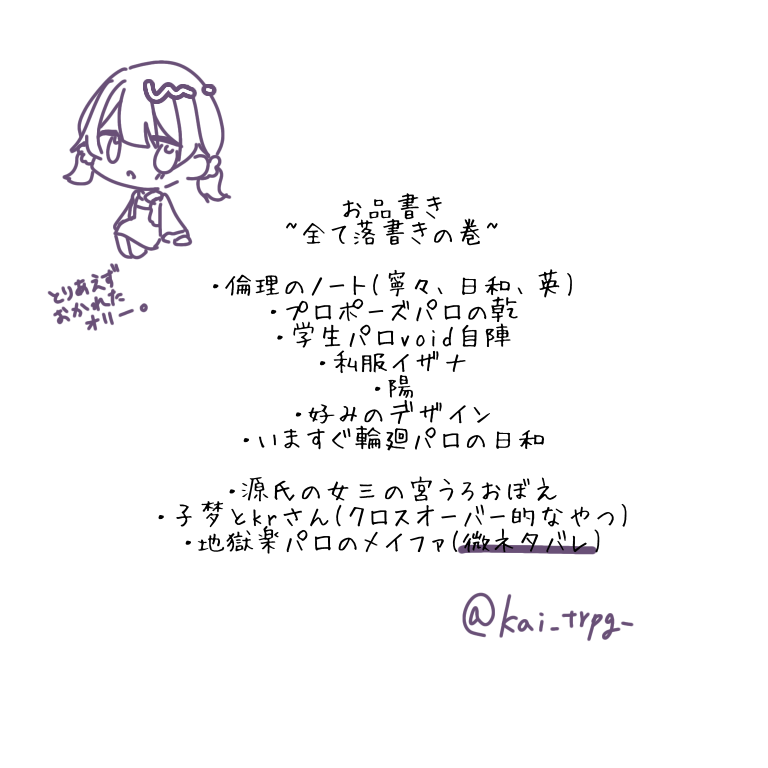 お品書き
~全て落書きの巻~
・倫理のノート(寧々、日和、英)
・プロポーズパロの乾
・学生パロvoid自陣
・私服イザナ
・陽
・好みのデザイン
・いますぐ輪廻パロの日和
・源氏の女三の宮うろおぼえ
・子夢とkrさん(クロスオーバー的なやつ)
・地獄楽パロのメイファ(微ネタバレ)
とりあえず
おかれた
オリー。
@kai_trpg_